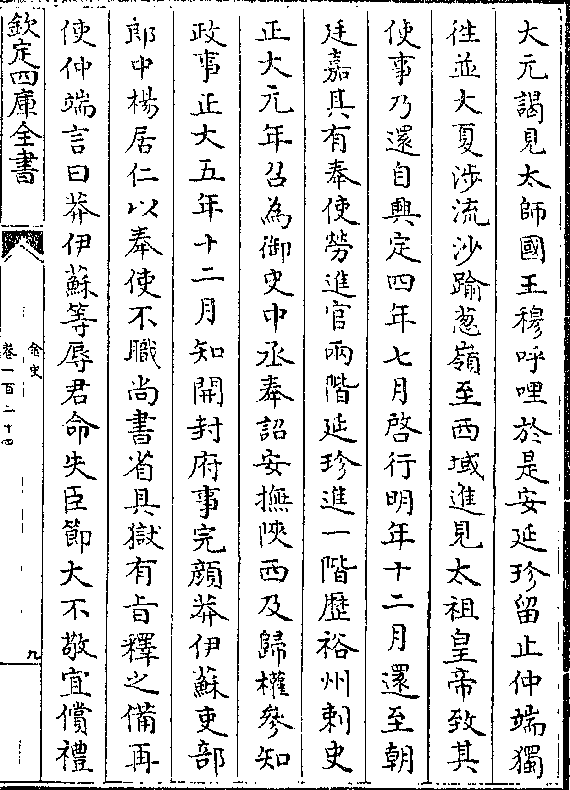 大元謁見太師國王穆呼哩於是安延珍留止仲端獨
徃並大夏涉流沙踰葱嶺至西域進見太祖皇帝致其
使事乃還自興定四年七月啓行明年十二月還至朝
廷嘉其有奉使勞進官兩階延珍進一階歴裕州刺史
正大元年召為御史中丞奉詔安撫陜西及歸權參知
政事正大五年十二月知開封府事完顔莽伊蘇吏部
郎中楊居仁以奉使不職尚書省具獄有㫖釋之備再
使仲端言曰莽伊蘇等辱君命失臣節大不敬宜償禮
欽定四庫全書
金史
卷一百二十四
九